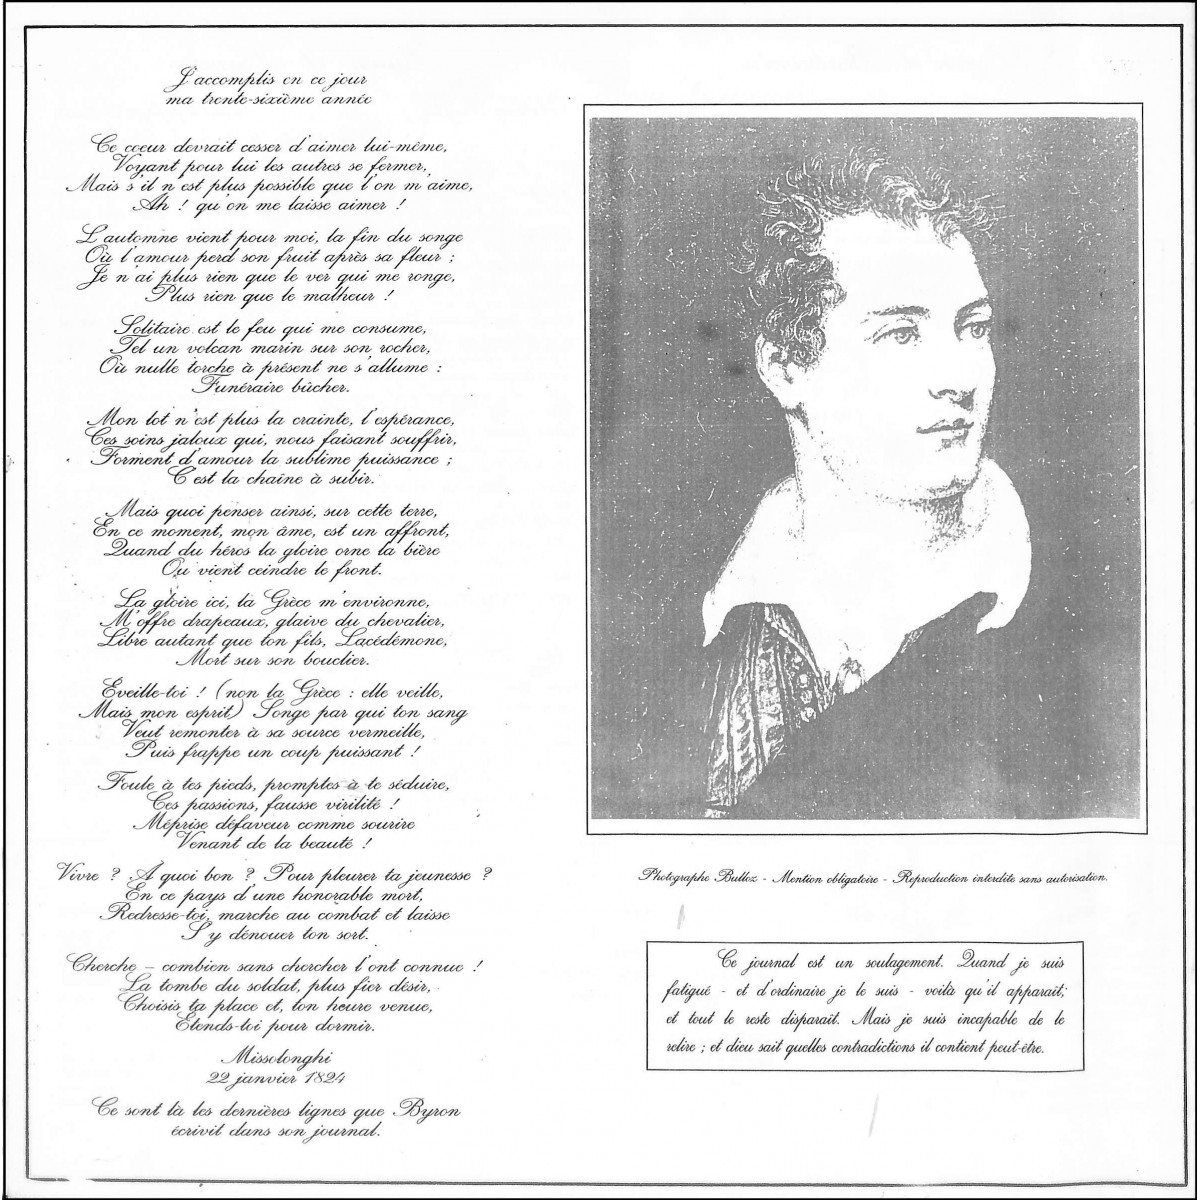 J'accomplis en ce jour
ma trente-sixième année
Ce coeur devrait cesser d'aimer lui-même,
Voyant pour lui les autres se fermer,
Mais s'il n'est plus possible que l'on m'aime,
Ah ! qu'on me laisse aimer !
L'automne vient pour moi, la fin du songe
Où l'amour perd son fruit après sa fleur ;
Je n'ai plus rien que le ver qui me ronge,
Plus rien que le malheur !
Solitaire est le feu qui me consume,
Tel un volcan marin sur son rocher,
Où nulle torche à présent ne s'allume :
Funéraire bûcher.
Mon lot n'est plus la crainte, l'espérance,
Ces soins jaloux qui, nous faisant souffrir,
Forment d'amour la sublime puissance ;
C'est la chaîne à subir.
Mais quoi penser ainsi, sur cette terre,
En ce moment, mon âme, est un affront,
Quand du héros la gloire orne la bière
Ou vient ceindre le front.
La gloire ici, la Grèce m'environne,
M'offre drapeaux, glaive du chevalier,
Libre autant que ton fils, Lacédémone,
Mort sur son bouclier.
Eveille-toi ! (non la Grèce : elle veille,
Mais mon esprit) Songe par qui ton sang
Veut remonter à sa source vermeille,
Puis frappe un coup puissant !
Foule à tes pieds, promptes à te séduire,
Ces passions, fausse virilité !
Méprise défaveur comme sourire
Venant de la beauté !
Vivre ? A quoi bon ? Pour pleurer ta jeunesse ?
En ce pays d'une honorable mort,
Redresse-toi, marche au combat et laisse
S'y dénouer ton sort.
Cherche – combien sans chercher l'ont connue !
La tombe du soldat, plus fier désir,
Choisis ta place et, ton heure venue,
Etends-toi pour dormir.
Missolonghi
22 janvier 1824
Ce sont là les dernières lignes que Byron
écrivit dans son journal.
Photographe Bulloz - Mention obligatoire - Reproduction interdite sans autorisation.
Ce journal est un soulagement. Quand je suis
fatigué - et d'ordinaire je le suis - voilà qu'il apparaît;
et tout le reste disparaît. Mais je suis incapable de le
relire ; et dieu sait quelles contradictions il contient peut-être.